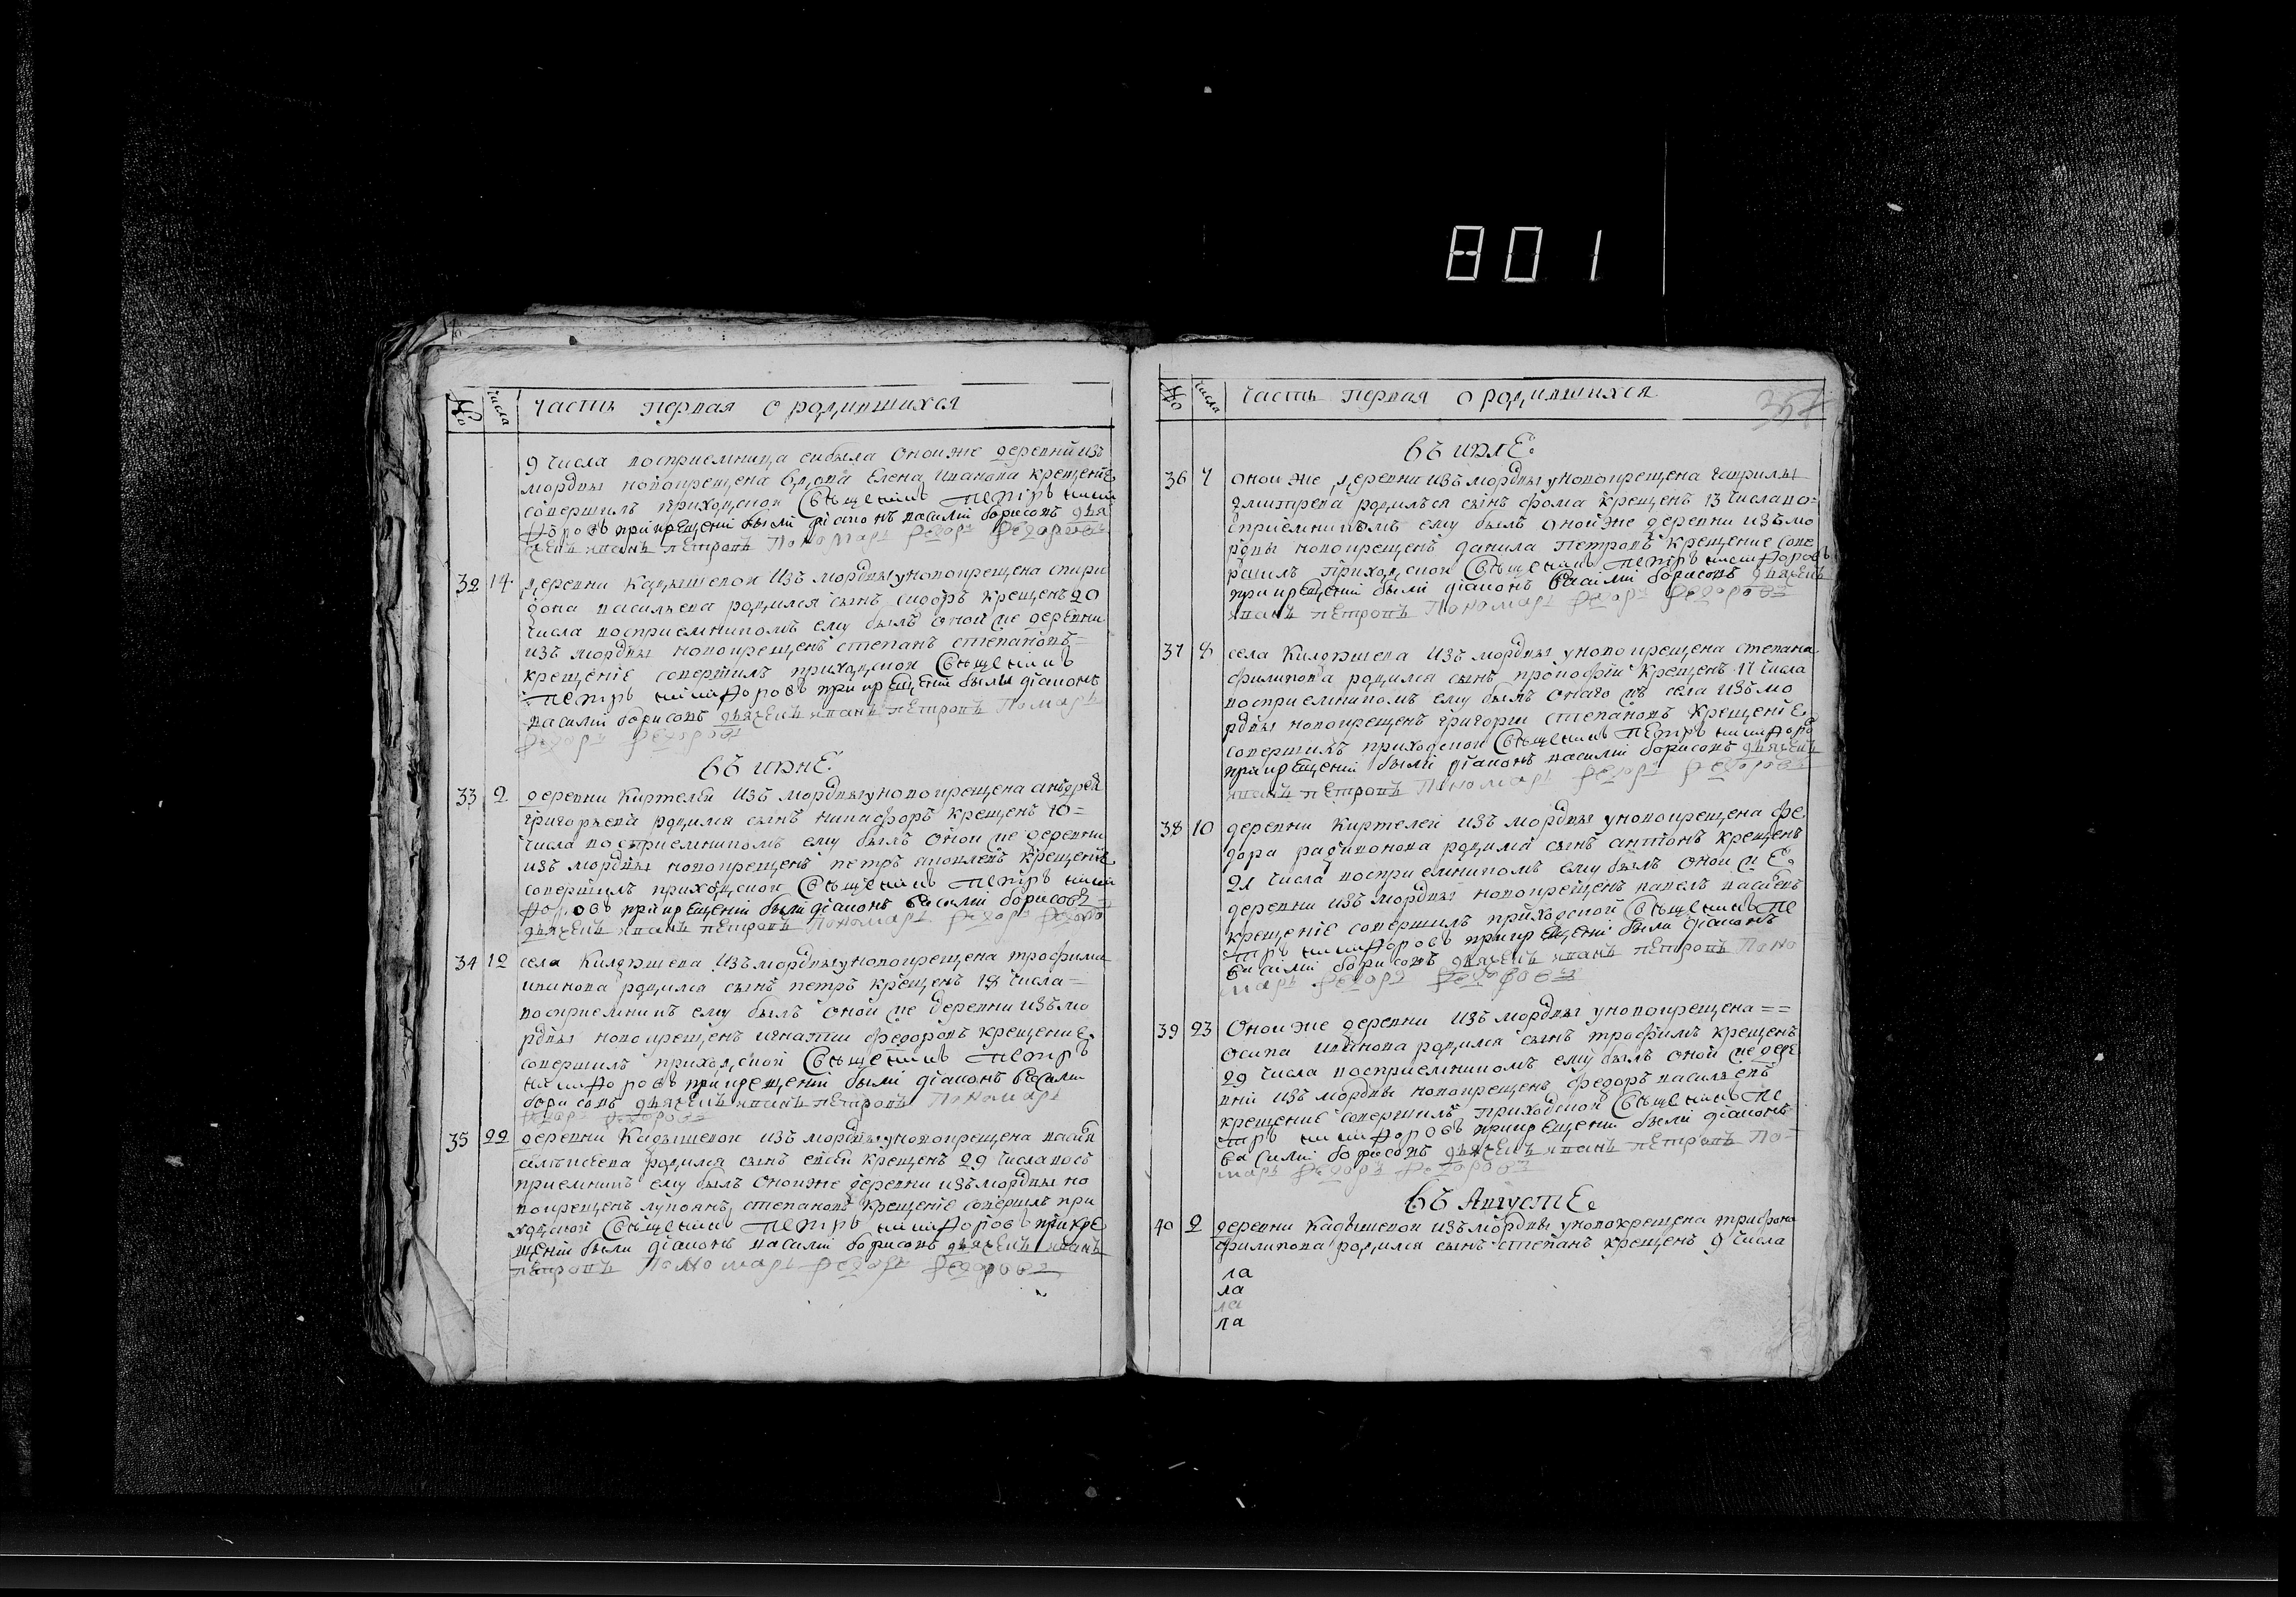 801
№ числа часть первая о родившихся
9 числа восприемница ей была оной же деревни изъ
мордвы новокрещена вдова Елена Иванова крещение
совершилъ приходской Священикъ Петръ Ники
форовъ при крещении были дiаконъ василiй борисовъ дья
чекъ иванъ петровъ Пономарь федоръ федоровъ
32 14 деревни Кадышевой изъ мордвы у новокрещена спири
дона васильева родился сынъ сидоръ крещенъ 20
числа восприемникомъ ему былъ оной же деревни
изъ мордвы новокрещенъ степанъ степановъ=
крещенiе совершилъ приходской Священикъ
Петръ никифоровъ при крещенiи были дiаконъ
василiй борисовъ дьячекъ иванъ петровъ Помарь
федоръ федоровъ
въ июне
33 2 деревни Киртелей изъ мордвы у новокрещена анъдрея
григорьева родился сынъ никифоръ крещенъ 10=
числа восприемникомъ ему былъ оной же деревни
изъ мордвы новокрещенъ петръ яковлевъ крещенiе
совершилъ приходской Священикъ Петръ ники
форовъ при крещенiи были дiаконъ василiй борисовъ
дьячекъ иванъ петровъ Пономарь федоръ федоро
34 12 села Килдюшева изъ мордвы у новокрещена трофима
иванова родился сынъ петръ крещенъ 18 числа=
восприемникъ ему былъ оной же деревни изъ мо
рдвы новокрещенъ игнатiи федоровъ крещение
совершилъ приходской Священикъ Петръ
никифоровъ при крещенiи были дiаконъ васили
борисовъ дьячекъ иванъ петровъ Пономарь
федоръ федоровъ
35 22 деревни Кадышевой изъ мордвы у новокрещена
алексеева родился сынъ крещенъ 29 числа вос
приемникъ ему былъ оной же деревни изъ мордвы но
вокрещенъ лукоянъ степановъ крещенiе совершилъ при
ходской Священикъ Петръ никифоровъ при кре
щенiи были дiаконъ василiй борисовъ дьячекъ иванъ
петровъ Пономарь федоръ федоровъ
№ числа часть первая о родившихся
357
въ июле
36 7 оной же деревни изъ мордвы у новокрещена гаврилы
дмитрева родился сынъ фома крещенъ 13 числа во=
сприемникомъ ему былъ оной же деревни изъ мо
рдвы новокрещенъ данила Петровъ крещение сове
ршилъ приходской Священикъ Петръ никифоровъ
при крещенiи были дiаконъ василiй борисовъ дьячекъ
иванъ петровъ Пономарь федоръ федоровъ
37 8 села Килдюшева изъ мордвы у новокрещена степана
филипова родился сынъ прокофiй крещенъ 17 числа
восприемникомъ ему былъ онаго же села изъ мо
рдвы новокрещенъ григорiи степановъ крещенiе
совершилъ приходской Священикъ Петръ никифоро
при крещенiи были дiаконъ василiй борисовъ дьячекъ
иванъ петровъ Пономарь федоръ федоровъ
38 10 деревни Киртелей изъ мордвы у новокрещена фе
дора радивонова родился сынъ антонъ крещенъ
21 числа восприемникомъ ему былъ оной же
деревни изъ мордвы новокрещенъ павелъ
крещенiе совершилъ приходской Священикъ Пе
тръ никифоровъ при крещенiи были дiаконъ
василiй борисовъ дьячекъ иванъ петровъ Поно
марь федоръ федоровъ
39 23 Оной же деревни изъ мордвы у новокрещена==
осипа иванова родился сынъ трофимъ крещенъ
29 числа восприемникомъ ему былъ оной же дере
внi изъ мордвы новокрещенъ федоръ васильевъ
крещение совершилъ приходской Священикъ Пе
тръ никифоровъ при крещенiи были дiаконъ
василiй борисовъ дьячекъ иванъ петровъ По=
марь федоръ федоровъ
въ Августе
40 2 деревни Кадышевой изъ мордвы у новокрещена трифона
филипова родился сынъ степанъ крещенъ 9 числа
ла
ла
ла
ла